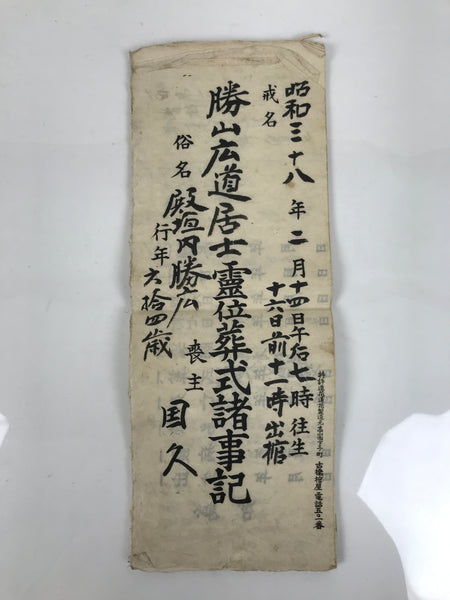 昭和三十八年二月十四日午后七時往生
十六日前十一時出棺
戒名
勝山広道居士靈位葬式諸事記
俗名 殿垣内勝広
行年六拾四歳
喪主 国久
古橋棺屋電話五〇一番